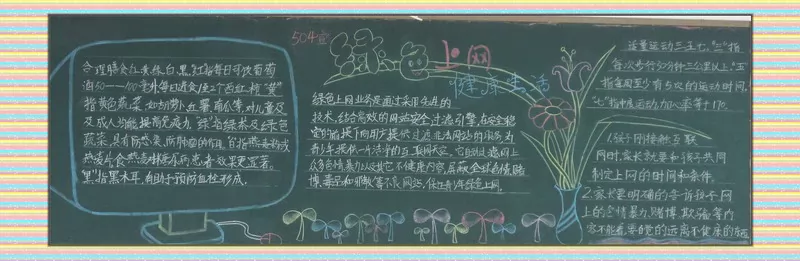 504宣
绿
上网
健康生活
合理膳食红黄绿白黑,红指每日可饮葡萄
酒50——100毫升每日进食1至2个西红柿"黄"
指黄色蔬菜,如胡萝卜,红薯,南瓜等,对儿童及
及成人均能提高免疫力."绿"指绿茶及绿色
蔬菜,具有防感染,防肿瘤的作用,"白"指燕麦粉或
燕麦片食燕麦粥
患者效果更显著。
黑"指黑木耳,有助于预防血栓形成。
绿色上网业务是通过采用先进的
技术,结合高效的网站安全过滤引擎,在安全稳
定的前提下向用户提供过滤非法网站的服务为
青少年提供一片洁净的互联网天空。它能过滤网上
众多色情暴力以及其它不健康内容,
赌
博,毒品和邪教等不良网站,保证青少年绿色上网.
适量运动三五七。"三"指
每次步行30分钟三公里以上"五"
指每周至少有5次的运动时间.
"七"指中度运动,加心率等于170.
1.孩子刚接触互联
网时,家长就要和孩子共同
制定上网的时间和条件。
2.家长要明确的告诉孩子网
上的色情暴力,赌博,欺骗等内
容不能看要自觉的远离不健康的东西